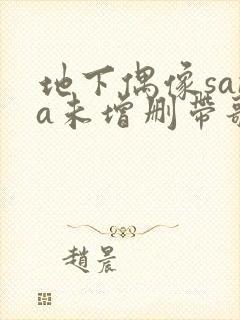 地下偶像sa
a未增删带
趙晨